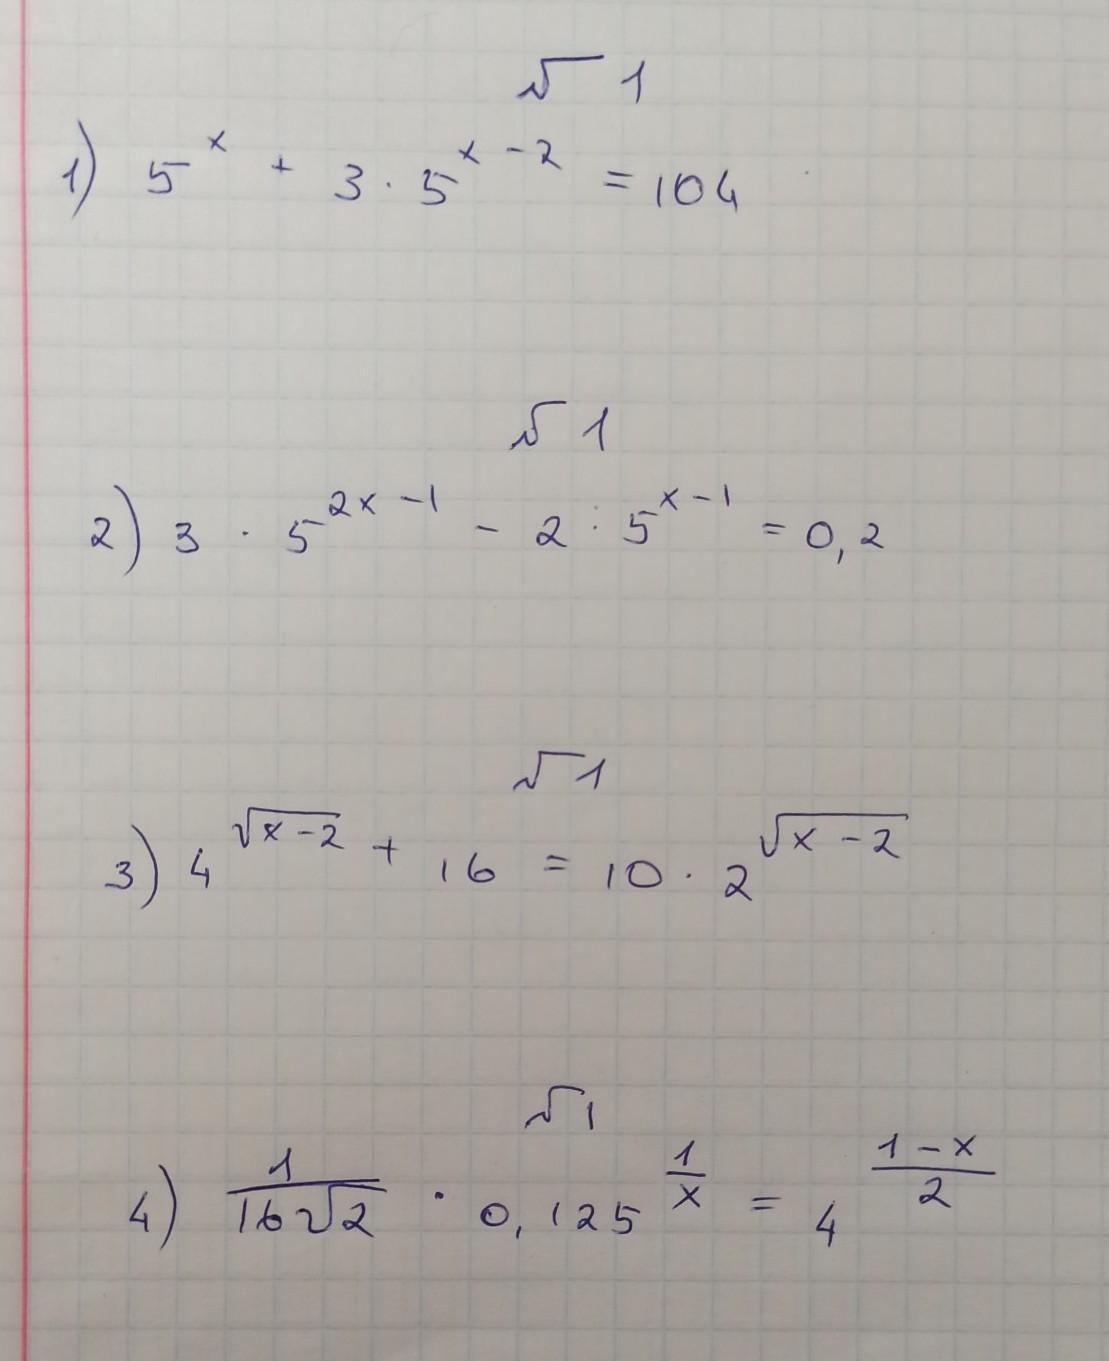 √ 1
1) 5^x + 3 · 5^(x - 2) = 104
√ 1
2) 3 · 5^(2x - 1) - 2 : 5^(x - 1) = 0,2
√ 1
3) 4^√(x - 2) + 16 = 10 · 2^√(x - 2)
√ 1
4) 1/(16√2) · 0,125^(1/x) = 4^((1 - x)/2)